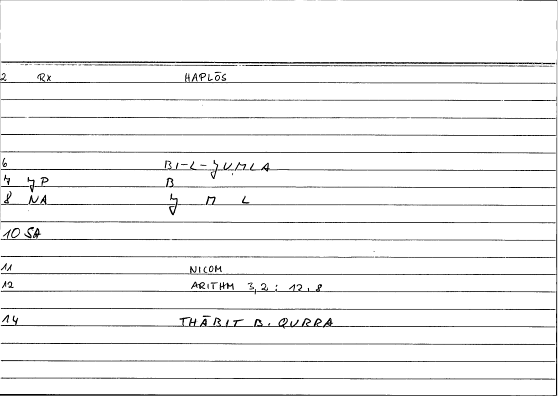 2 Rx HAPLŌS
6 BI-L-JUMLA
7 JP B
8 NA J M L
10 SA
11 NICOM
12 ARITHM 3,2 : 12.8
14 THĀBIT B. QURRA